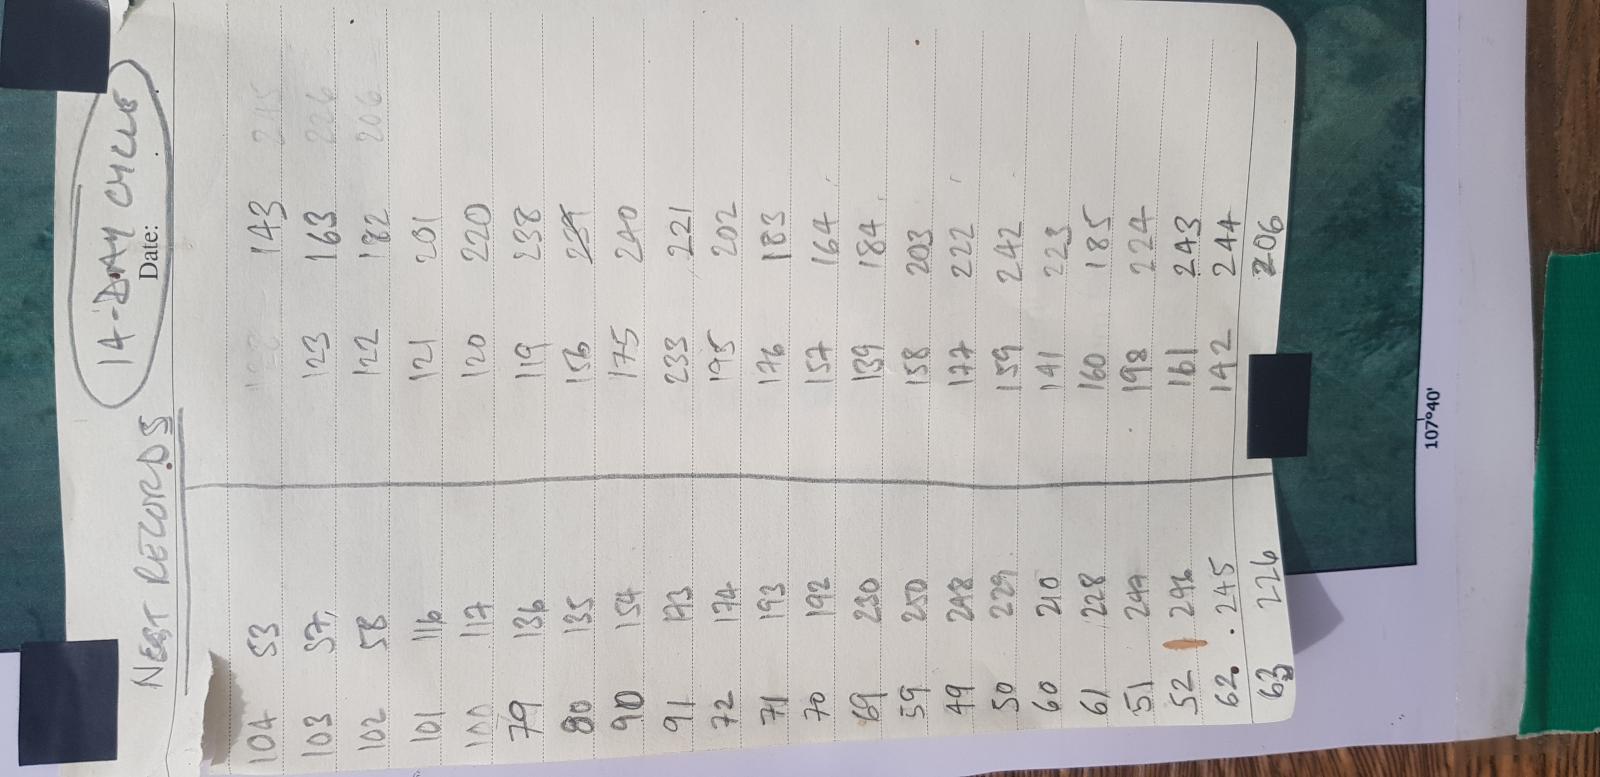 NEST RECORDS 14-DAY CYCLE
Date:
104 53 143 245
103 57 123 163 226
102 58 122 182 206
101 116 121 201
100 117 120 220
79 136 119 238
80 135 156
90 154 175 240
91 173 233 221
72 174 195 202
71 193 176 183
70 192 157 164
69 230 139 184
59 250 158 203
49 248 177 222
50 229 159 242
60 210 141 223
61 228 160 185
51 247 198 224
52 246 161 243
62. 245 142 244
63 226 206
107°40'